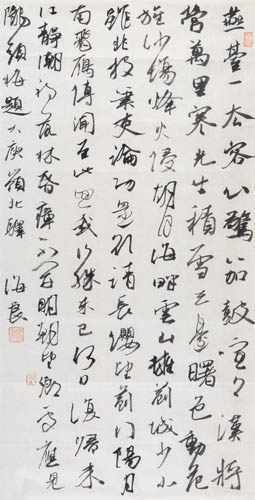 燕臺一去客心驚笳鼓喧々漢將
營萬里寒光生積雪三邊曙色動危
旌沙場烽火侵胡月海畔雲山擁薊城少小
雖非投筆吏論功還欲請長纓望薊門陽月
南飛鴈傳聞至此回我行殊未已何日復歸來
江靜潮初落林昏瘴不開明朝望鄉處應見
隴頭梅題大庾嶺北驛 海良